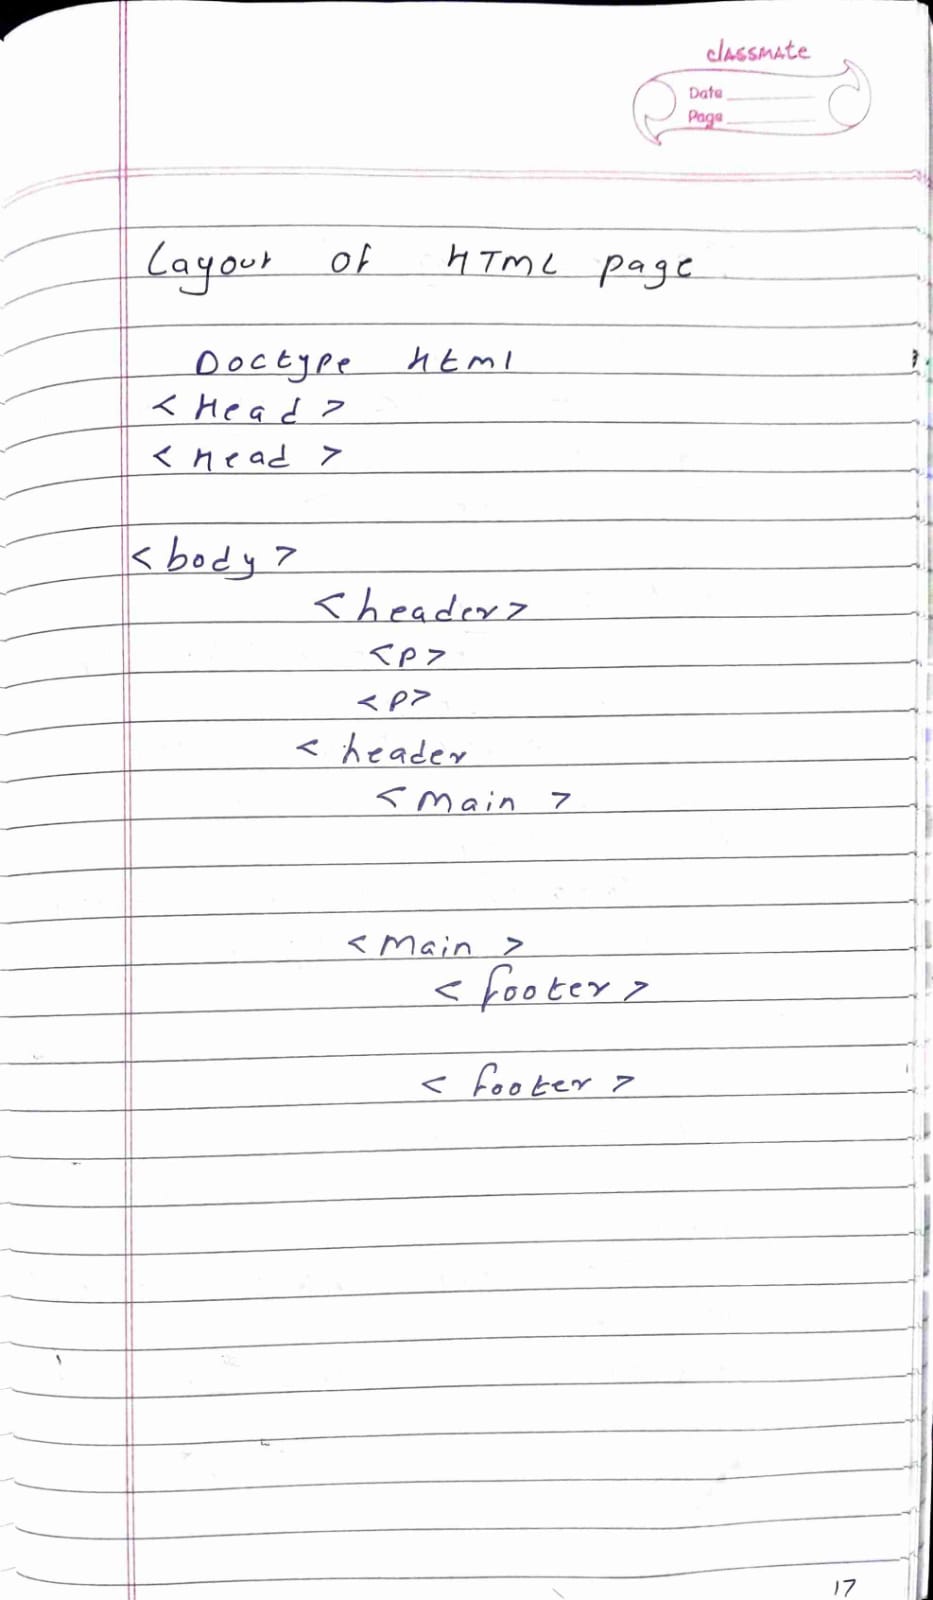 classmate
Date
Page
Layout of HTML page
Doctype html
< Head >
< Head >
<body>
<header>
<P>
<P>
< header
<main >
<main >
< footer >
< footer >
17